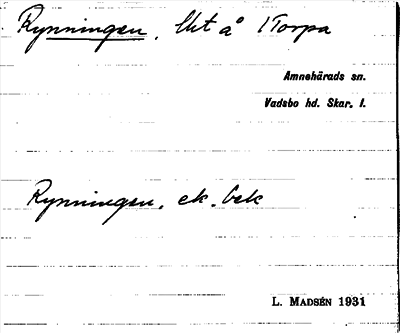 Rynningen, Utt å 1 Torpa
Amnehärads sn.
Vadsbo hd. Skar. l.
Rynningen. ek. bek
L. MADSÉN 1931